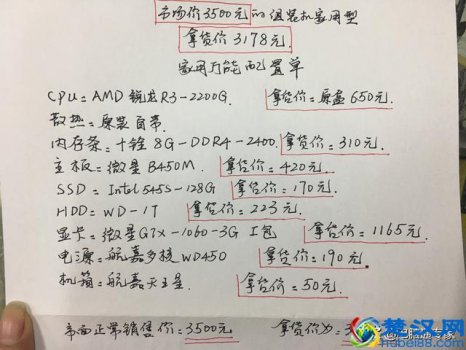 市场价3500元的组装机家用型
拿货价3178元.
家用万能配置单
CPU=AMD 锐龙R3-2200G. 拿货价=原盒650元.
散热=原装自带.
内存条=十铨8G-DDR4-2400. 拿货价=310元.
主板=微星B450M. 拿货价=420元
SSD=Intel 545S-128G 拿货价=170元
HDD=WD-1T 拿货价=223元.
显卡=微星GTX-1060-3G I包 拿货价=1165元
电源=航嘉多核WD450 拿货价=190元.
机箱=航嘉天王星. 拿货价=50元.
市面正常销售价=3500元 拿货价为:3
黄汉网
habei88.com